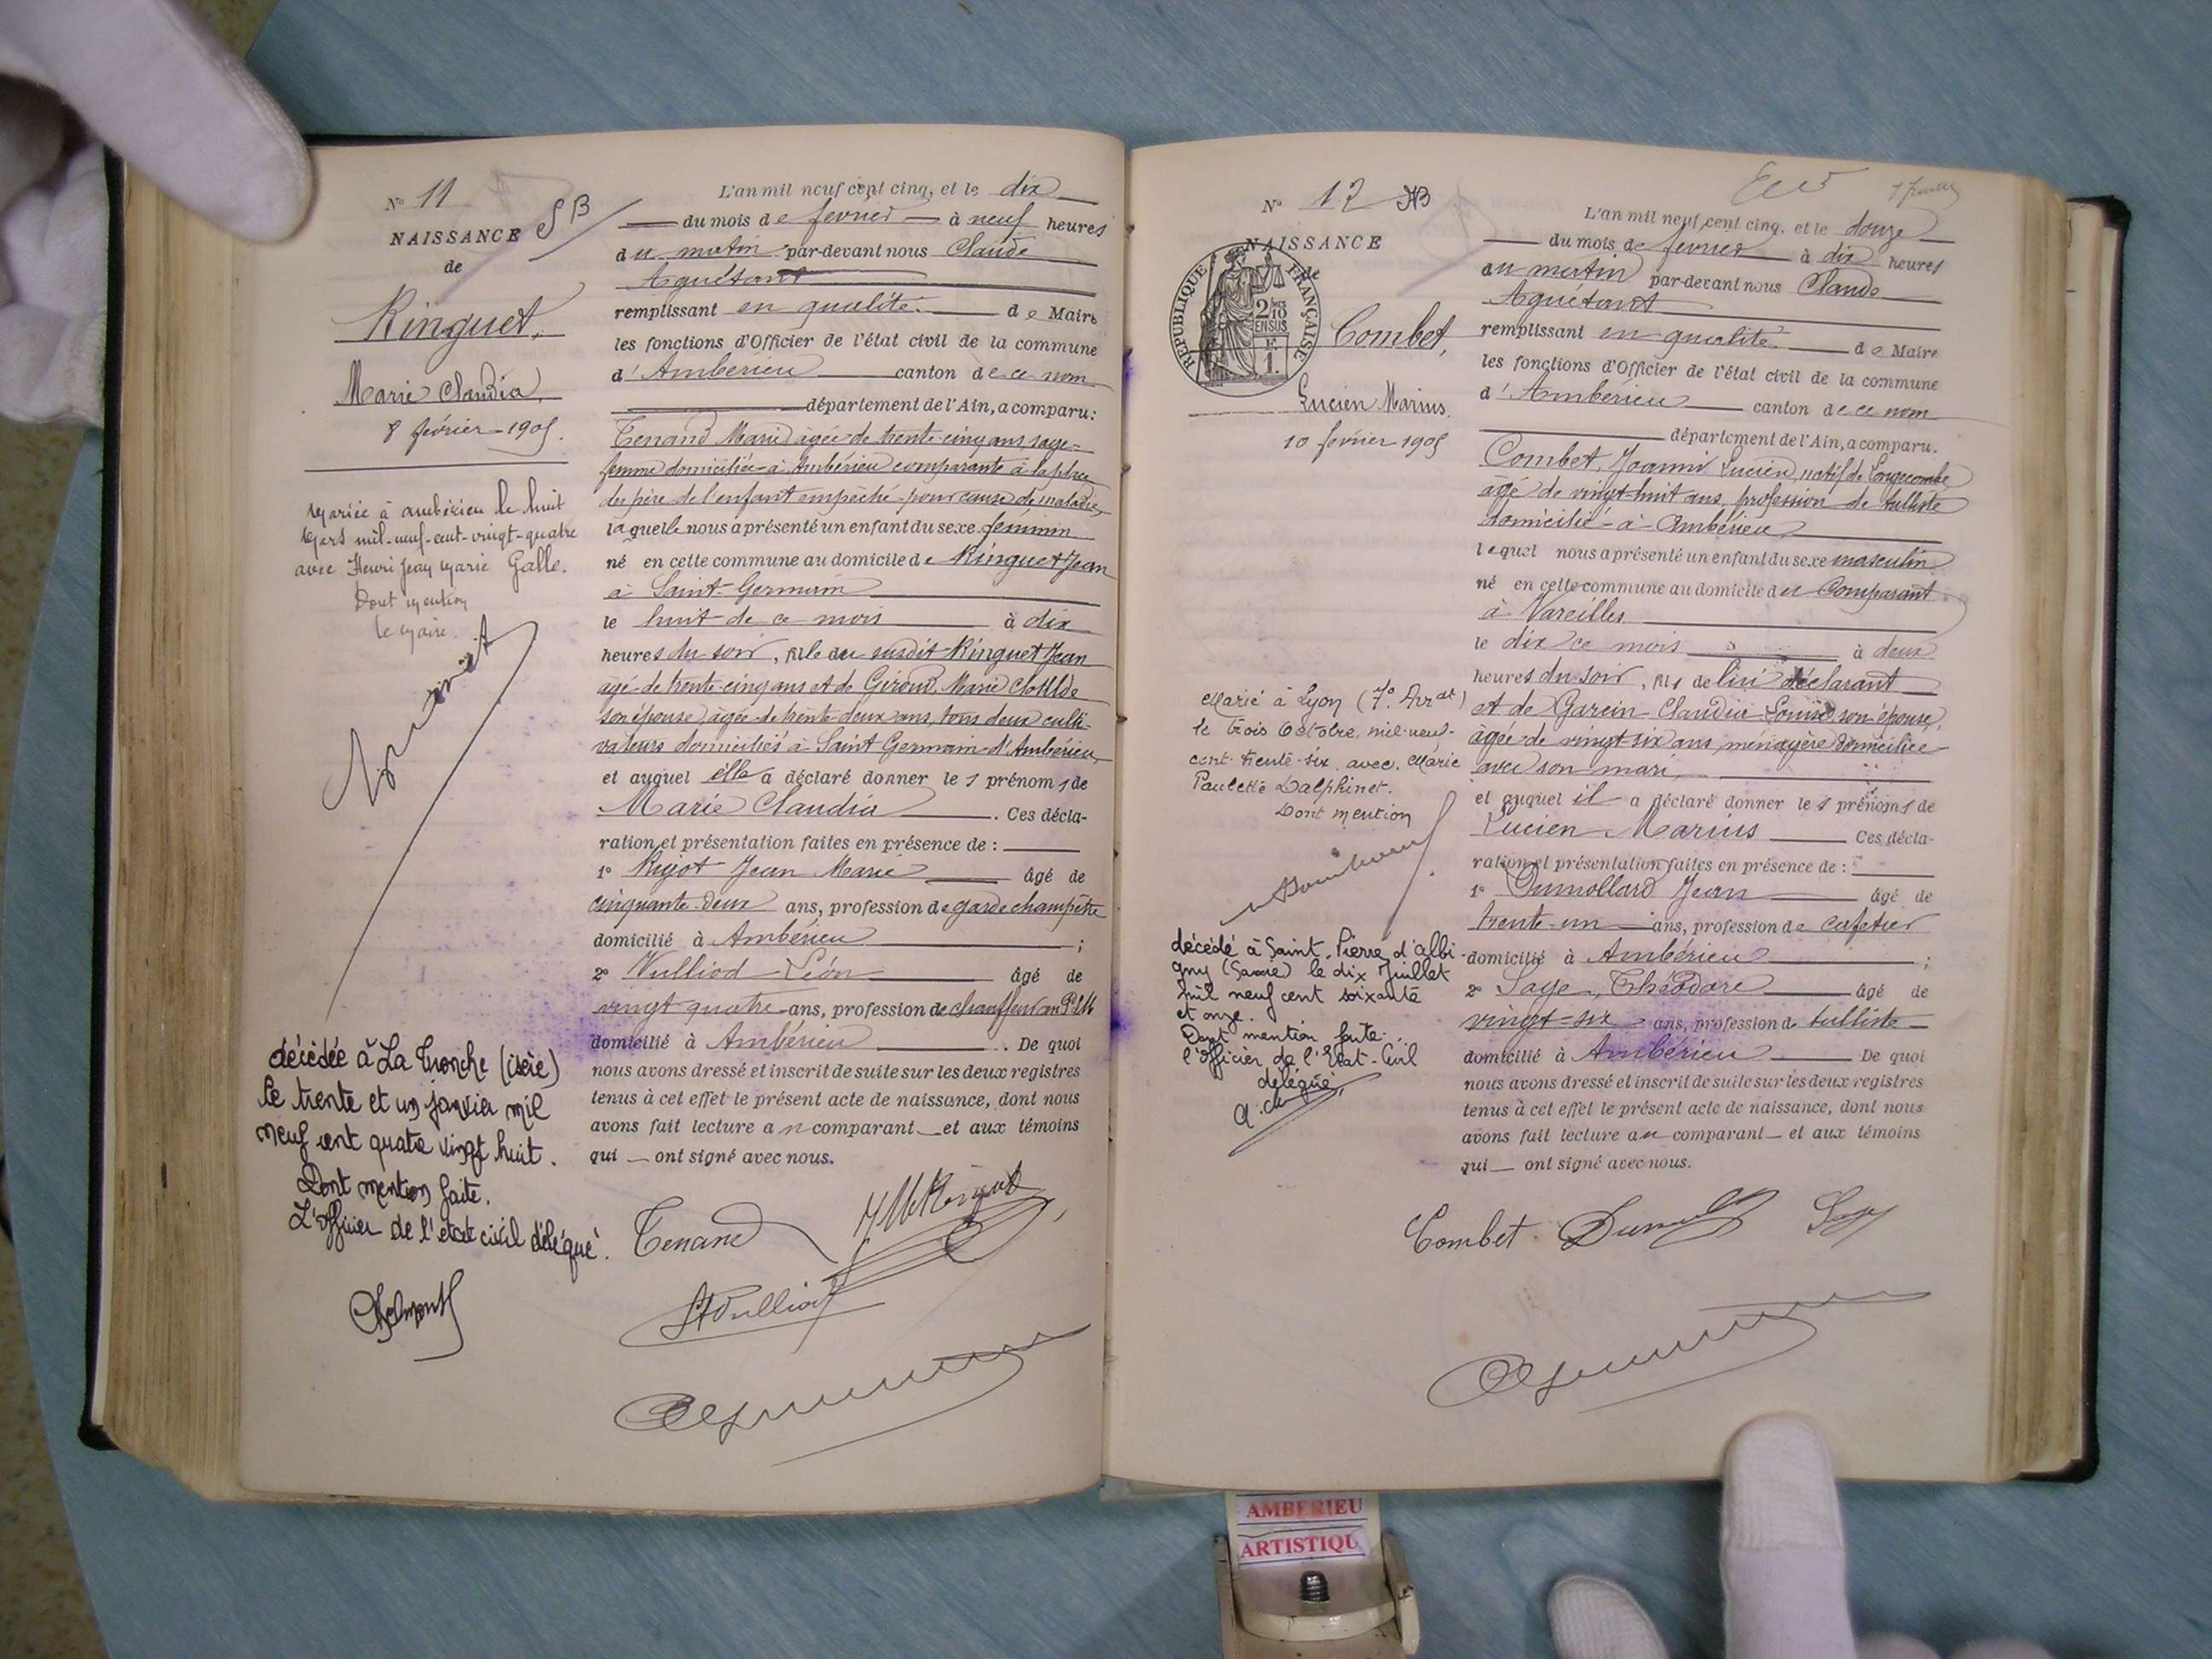 N° 11
SB
NAISSANCE
de
Ringuet,
Marie Claudia
8 février 1905.
Mariée à Ambérieu le huit
Mars mil-neuf-cent-vingt-quatre
avec Henri Jean Marie Galle.
Dont mention
le Maire.
décédée à La Tronche (Isère)
le trente et un janvier mil
neuf cent quatre vingt huit.
Dont mention faite.
L'officier de l'état civil délégué.
L'an mil neuf cent cinq, et le dix
du mois de fevrier à neuf heures
du matin par-devant nous Claude
Aguétant
remplissant en qualité de Maire
les fonctions d'Officier de l'état civil de la commune
d' Ambérieu canton de ce nom
département de l'Ain, a comparu:
Tenand Marie âgée de trente-cinq ans sage-
femme domiciliée à Ambérieu comparante à la place
du père de l'enfant empêché pour cause de maladie,
laquelle nous a présenté un enfant du sexe féminin
né en cette commune au domicile de Ringuet Jean
à Saint-Germain
le huit de ce mois à dix
heures du soir, fille du susdit Ringuet Jean
agé de trente cinq ans et de Giroud Marie Clotilde
son épouse âgée de trente-deux ans, tous deux culti-
vateurs domiciliés à Saint Germain d'Ambérieu,
et auquel elle a déclaré donner les prénoms de
Marie Claudia . Ces décla-
ration et présentation faites en présence de :
1° Rigot Jean Marie âgé de
cinquante-deux ans, profession de garde champêtre
domicilié à Ambérieu ;
2° Vulliod Léon âgé de
vingt quatre ans, profession de chauffeur au P.L.M
domicilié à Ambérieu . De quoi
nous avons dressé et inscrit de suite sur les deux registres
tenus à cet effet le présent acte de naissance, dont nous
avons fait lecture au comparant et aux témoins
qui ont signé avec nous.
Tenand
JM Rigot
Vulliod
N° 12
NAISSANCE
de
RÉPUBLIQUE FRANÇAISE
2/10 EN SUS
1 F.
Combet,
Lucien Marius.
10 février 1905
Marié à Lyon (7e Arrdt)
le trois Octobre mil-neuf-
cent-trente-six avec Marie
Paulette Dalphinet.
Dont mention
décédé à Saint-Pierre d'Albi-
gny (Savoie) le dix Juillet
mil neuf cent soixante
et onze.
Dont mention faite.
l'officier de l'Etat-Civil
délégué
L'an mil neuf cent cinq, et le douze
du mois de fevrier à dix heures
du matin par-devant nous Claude
Aguétant
remplissant en qualité de Maire
les fonctions d'Officier de l'état civil de la commune
d' Ambérieu canton de ce nom
département de l'Ain, a comparu.
Combet, Joanni Lucien, natif de Longecombe
agé de vingt-huit ans, profession de tulliste
domicilié à Ambérieu
lequel nous a présenté un enfant du sexe masculin
né en cette commune au domicile du Comparant
à Vareilles
le dix ce mois à deux
heures du soir, fils de lui déclarant
et de Garcin Claudia Louise son épouse,
agée de vingt-six ans, ménagère domiciliée
avec son mari,
et auquel il a déclaré donner les prénoms de
Lucien Marius Ces décla-
ration et présentation faites en présence de :
1° Dumollard Jean âgé de
trente-un ans, profession de cafetier
domicilié à Ambérieu ;
2° Saye, Théodore âgé de
vingt-six ans, profession de tulliste
domicilié à Ambérieu De quoi
nous avons dressé et inscrit de suite sur les deux registres
tenus à cet effet le présent acte de naissance, dont nous
avons fait lecture au comparant et aux témoins
qui ont signé avec nous.
Combet
AMBERIEU
ARTISTIQU